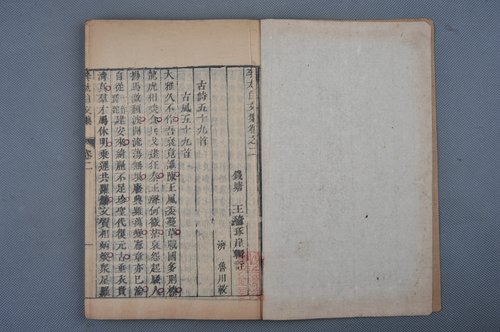 李太白文集卷之二
錢塘 王琦琢崖輯註
濟 魯川較
古詩五十九首
古風五十九首
大雅久不作吾衰竟誰陳王風委蔓草戰國多荊榛
龍虎相啖食兵戈逮狂秦正聲何微茫哀怨起騷人
揚馬激頹波開流蕩無垠廢興雖萬變憲章亦已淪
自從建安來綺麗不足珍聖代復元古垂衣貴
清真羣才屬休明乘運共躍鱗文質相炳煥眾星羅
卷二